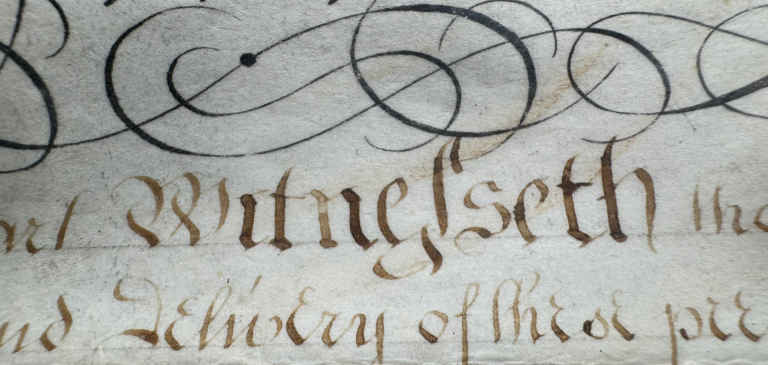 art Witneſseth tha
and Delivery of these pre